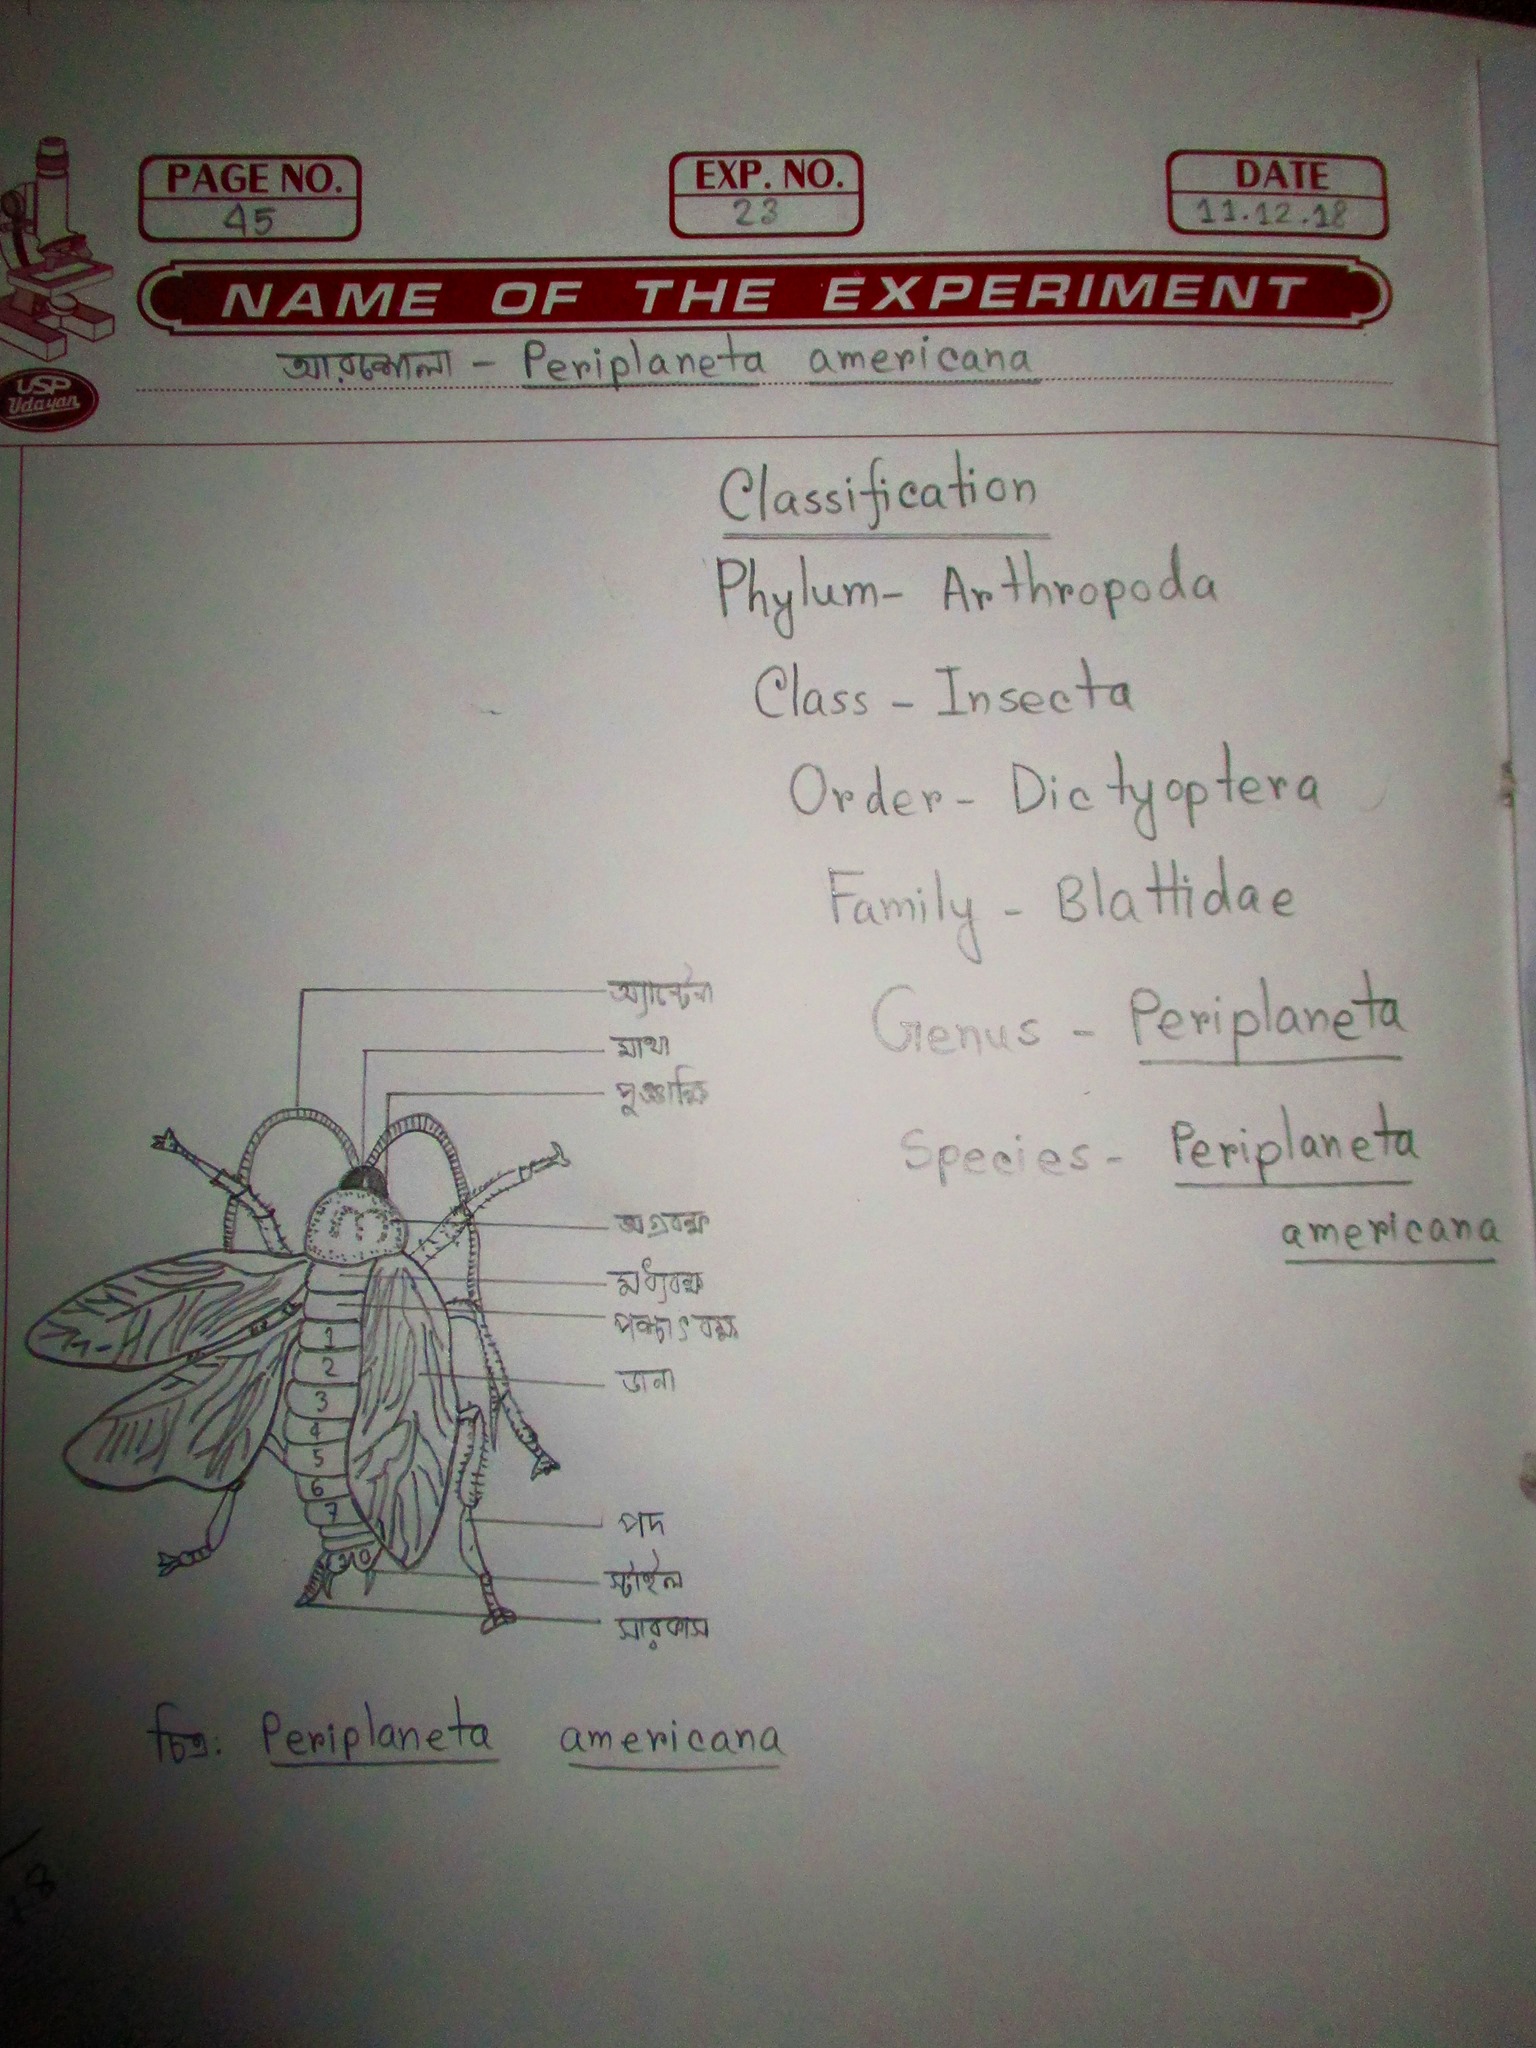 PAGE NO.
45
EXP. NO.
23
DATE
11.12.18
NAME OF THE EXPERIMENT
আরশোলা - Periplaneta americana
USP
Udayan
Classification
Phylum- Arthropoda
Class - Insecta
Order- Dictyoptera
Family - Blattidae
Genus - Periplaneta
Species- Periplaneta
americana
অ্যান্টেনা
মাথা
পুঞ্জাক্ষি
অগ্রবক্ষ
মধ্যবক্ষ
পশ্চাৎবক্ষ
ডানা
1
2
3
4
5
6
7
10
পদ
স্টাইল
সারকাস
চিত্র: Periplaneta americana